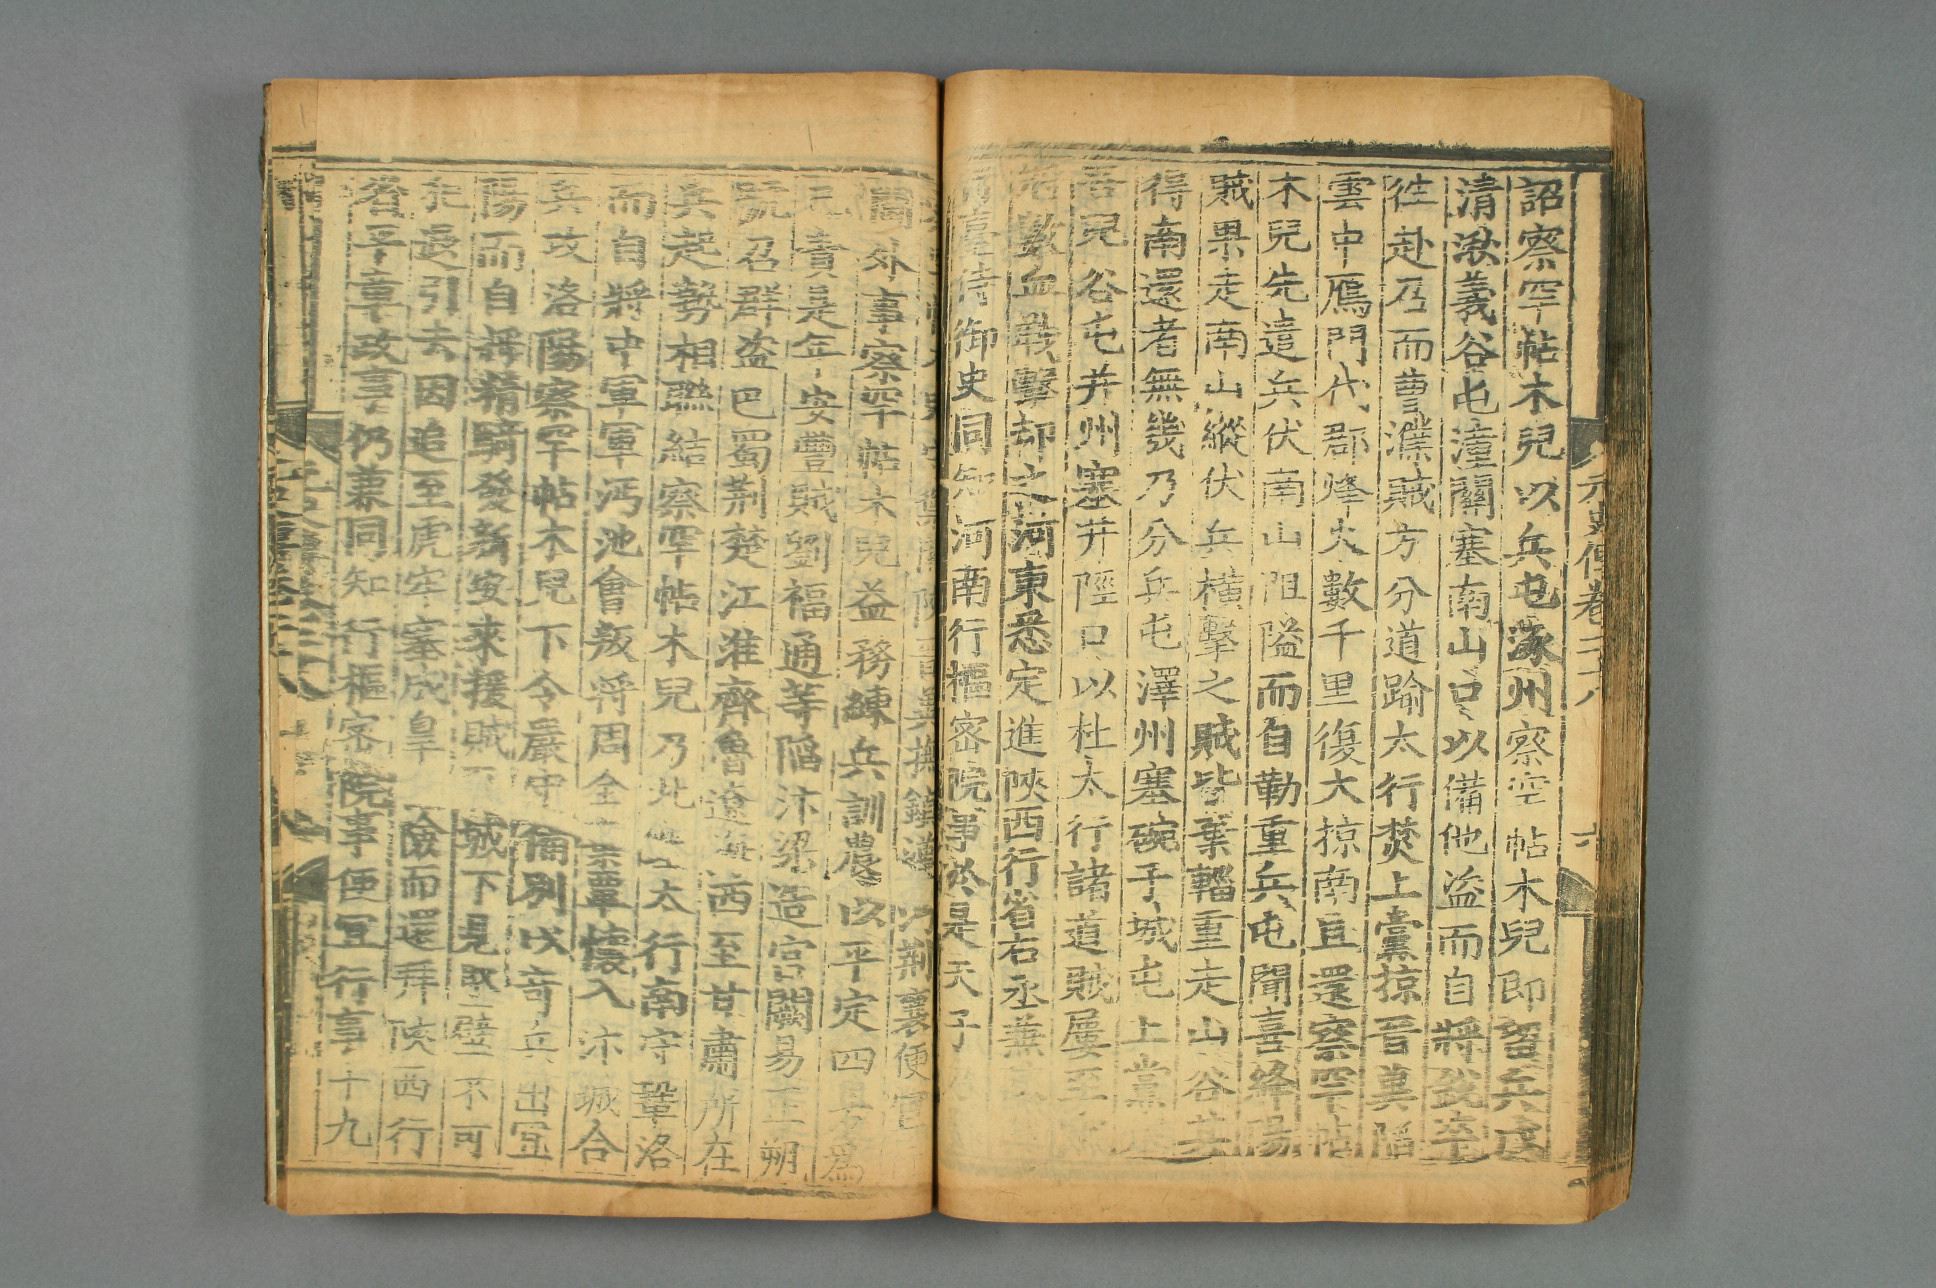 元史傳卷二十八
詔察罕帖木兒以兵屯涿州察罕帖木兒即留兵戍
清湫義谷屯潼關塞南山口以備他盜而自將銳卒
往赴召而曹濮賊方分道踰太行焚上黨掠晉冀陷
雲中鴈門代郡烽火數千里復大掠南且還察罕帖
木兒先遣兵伏南山阻隘而自勒重兵屯聞喜絳陽
賊果走南山縱伏兵橫擊之賊皆棄輜重走山谷其
得南還者無幾乃分兵屯澤州塞碗子城屯上黨
吾兒谷屯并州塞井陘口以杜太行諸道賊屢至
數血戰擊却之河東悉定進陝西行省右丞兼
行臺侍御史同知河南行樞密院事於是天子
撫鎮 以荊襄便宜
閫外事察罕帖木兒益務練兵訓農以平定四方爲
己責是年安豐賊劉福通等陷汴梁造宮闕易正朔
號召群盜巴蜀荊楚江淮齊魯遼海西至甘肅所在
兵起勢相聯結察罕帖木兒乃北 太行南守鞏洛
而自將中軍軍沔池會叛將周全 覃懷入汴城合
兵攻洛陽察罕帖木兒下令嚴守備別以奇兵出宜
陽而自將精騎發新安來援賊 城下見堅壁不可
犯退引去因追至虎牢塞成皋 險而還拜陝西行
省平章政事仍兼同知行樞密院事便宜行事十九